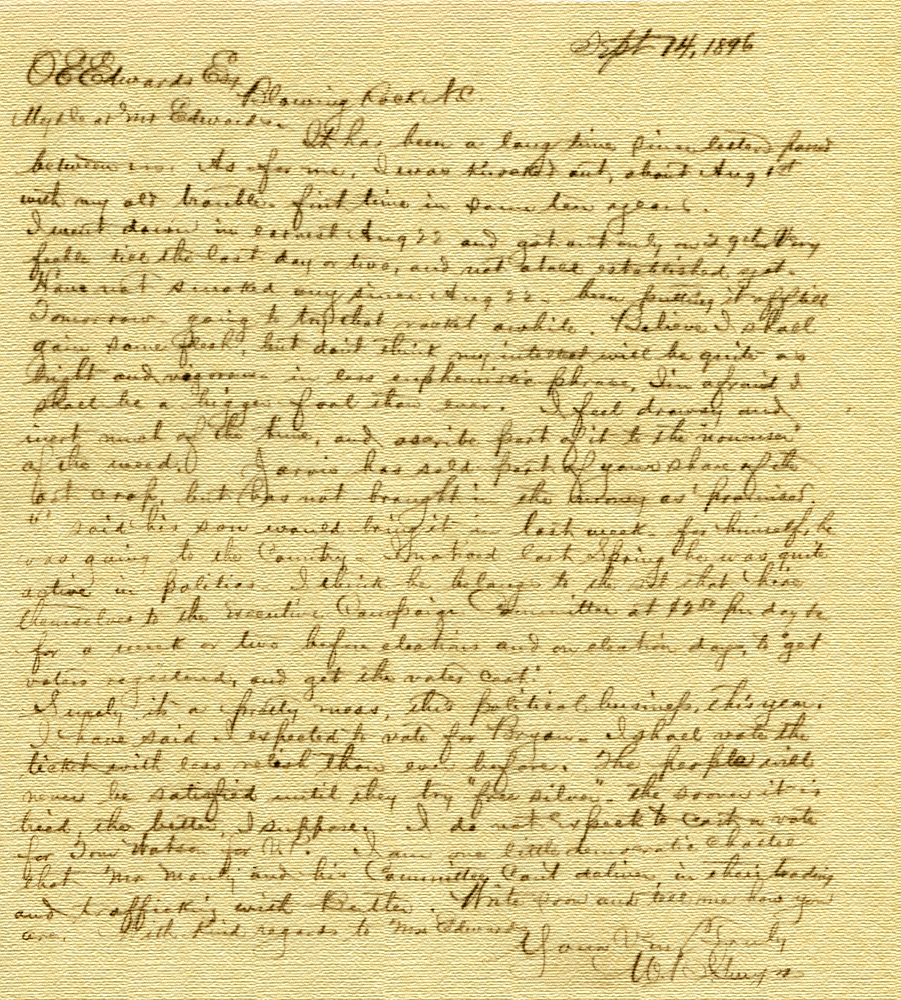 Sept 14, 1896
O E Edwards Esq
Blowing Rock N.C.
My dear Mr Edwards
It has been a long time since letters passed
between us. As for me, I was knocked out, about Aug 1st
with my old trouble - first time in some ten years.
I went down in earnest Aug 22 and got out only very
feeble till the last day or two, and not at all established, yet.
Have not smoked any since Aug 22 - been putting it off till
Tomorrow - going to try that racket awhile. Believe I shall
gain some flesh, but don't think my intellect will be quite as
bright and vigorous - in less euphemistic phrase, I'm afraid I
shall be a bigger fool than ever. I feel drowsy and
inert much of the time, and ascribe part of it to the "nonuser"
of the weed. Jarvis has sold part of your share of the
oat crop, but has not brought in the money as promised.
said his son would bring it in last week - for himself, he
was going to the Country - I noticed last Spring he was quite
active in politics I think he belongs to the set that hire
themselves to the executive Campaign Committee at $2.00 per day
for a week or two before elections and on election days, to "get
voters registered, and get the votes cast."
Surely it's a pretty mess, this political business, this year.
I have said I expected to vote for Bryan - I shall vote the
ticket with less relish than ever before. The people will
never be satisfied until they try "free silver" - the sooner it is
tried, the better, I suppose. I do not expect to cast a vote
for Tom Watson for V.P. I am one little democratic
that Mr Manly and his Committee can't deliver in their trading
and trafficking with Butler. Write soon and tell me how you
are. With kind regards to Mrs Edwards
Yours Very Truly